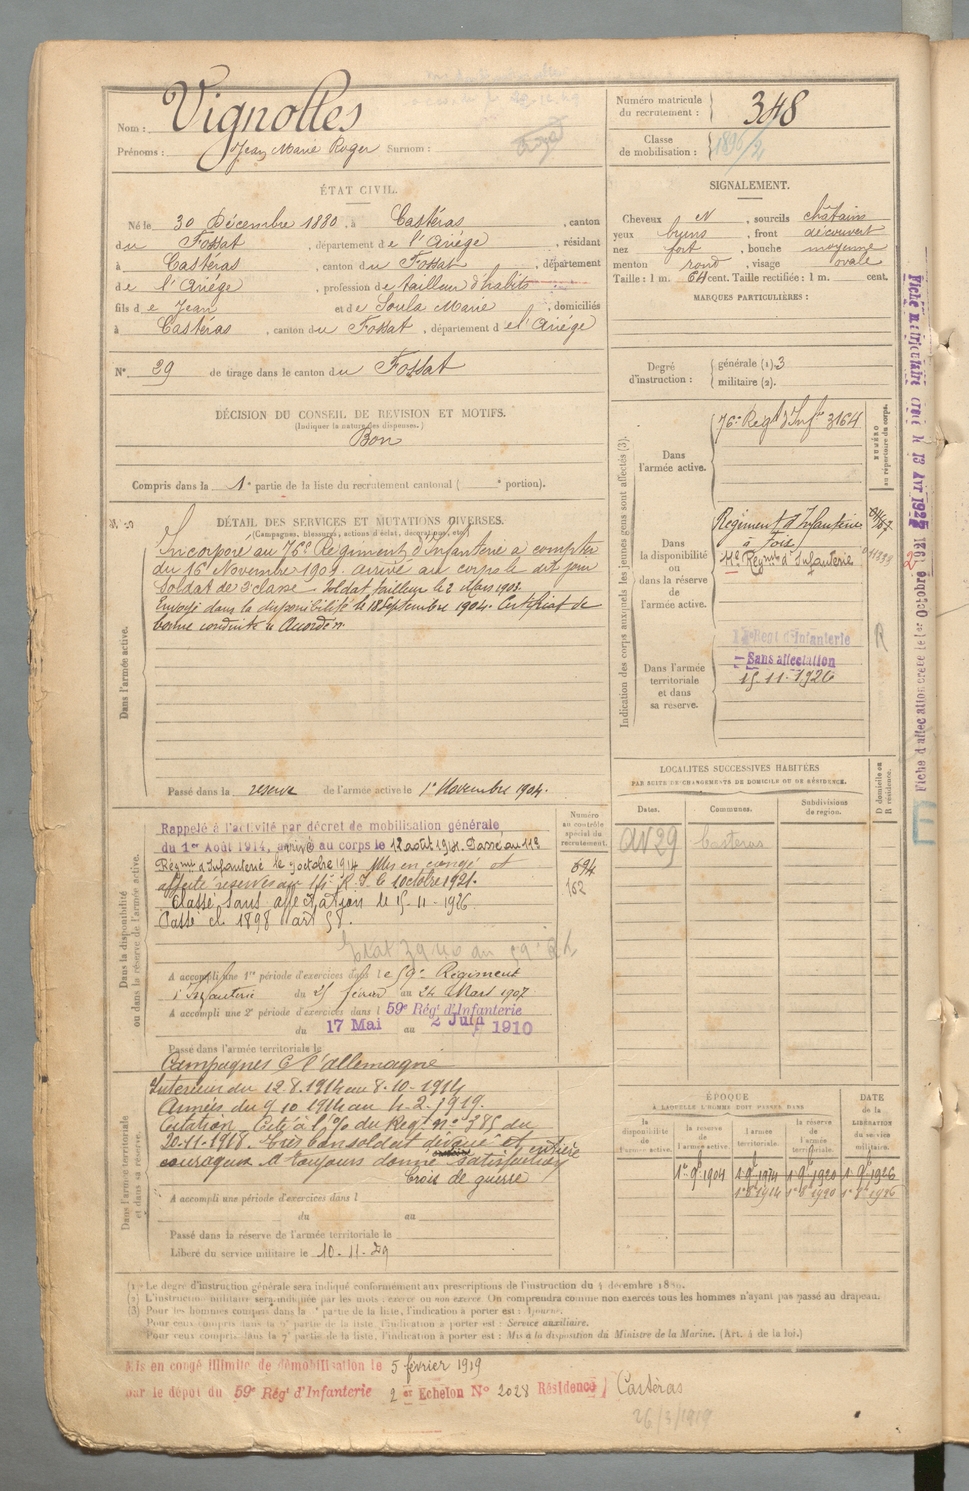 Nom : Vignolles
Prénoms : Jean Marie Roger Surnom :
Numéro matricule du recrutement : 348
Classe de mobilisation :
ÉTAT CIVIL.
Né le 30 Décembre 1880, à Castéras, canton
du Fossat, département de l'Ariége, résidant
à Castéras, canton du Fossat, département
de l'Ariége, profession de tailleur d'habits
fils de Jean et de Soula Marie, domiciliés
à Castéras, canton du Fossat, département de l'Ariége
N° 29 de tirage dans le canton du Fossat
SIGNALEMENT.
Cheveux N, sourcils châtains
yeux bruns, front découvert
nez fort, bouche moyenne
menton rond, visage ovale
Taille : 1 m. 64 cent. Taille rectifiée : 1 m. cent.
MARQUES PARTICULIÈRES :
Degré d'instruction : générale (1). 3
militaire (2).
DÉCISION DU CONSEIL DE REVISION ET MOTIFS.
(Indiquer la nature des dispenses.)
Bon
Compris dans la 1e partie de la liste du recrutement cantonal ( e portion).
DÉTAIL DES SERVICES ET MUTATIONS DIVERSES.
(Campagnes, blessures, actions d'éclat, décorations, etc.)
Dans l'armée active.
Incorporé au 76e Régiment d'Infanterie à compter
du 16 Novembre 1901. arrivé au corps le dit jour
Soldat de 2e classe. Soldat tailleur le 2 Mars 1903.
Envoyé dans la disponibilité le 18 Septembre 1904. Certificat de
bonne conduite Accordé.
Passé dans la réserve de l'armée active le 1er Novembre 1904.
Indication des corps auxquels les jeunes gens sont affectés (3).
NUMÉRO au répertoire du corps.
Dans l'armée active.
76e Regt d'Infie 3164
Dans la disponibilité ou dans la réserve de l'armée active.
Régiment d'Infanterie
à Foix
11e Regmt d'Infanterie
Dans l'armée territoriale et dans sa réserve.
Regt d'Infanterie
Sans affectation
15-11-1926
R
Fiche d'affectation créée le 1er Octobre 1921
LOCALITÉS SUCCESSIVES HABITÉES
PAR SUITE DE CHANGEMENTS DE DOMICILE OU DE RÉSIDENCE.
Dates. Communes. Subdivisions de région. D domicile ou R résidence.
AN 29 Casteras
Dans la disponibilité ou dans la réserve de l'armée active.
Numéro au contrôle spécial du recrutement.
694
162
Rappelé à l'activité par décret de mobilisation générale
du 1er Août 1914, arrivé au corps le 12 août 1914. Passé au 11e
Régmt d'Infanterie le 9 octobre 1914 Mis en congé et
Classé sans affectation le 15-11-1926
Passé cl 1898 art 58.
A accompli une 1re période d'exercices dans le 59e Régiment
d'Infanterie du 25 février au 24 Mars 1907
A accompli une 2e période d'exercices dans l 59e Rég' d'Infanterie
du 17 Mai au 2 Juin 1910
Passé dans l'armée territoriale le
Campagnes C l'allemagne
Dans l'armée territoriale et dans sa réserve.
Intérieur du 12.8.1914 au 8-10-1914
Armées du 9 10 1914 au 4-2-1919.
Citation. Cité à l'o/o du Regt n° 385 du
20-11-1918. Très bon soldat dévoué et
courageux A toujours donné entière satisfaction
Croix de guerre
A accompli une période d'exercices dans l
du au
Passé dans la réserve de l'armée territoriale le
Libéré du service militaire le 10-11-29
ÉPOQUE
À LAQUELLE L'HOMME DOIT PASSER DANS
la disponibilité de l'armée active. la réserve de l'armée active l'armée territoriale. la réserve de l'armée territoriale. DATE de la LIBÉRATION du service militaire.
1er 9bre 1904 1er 9bre 1914 1er 9bre 1920 1er 9bre 1926
(1) Le degré d'instruction générale sera indiqué conformément aux prescriptions de l'instruction du 4 décembre 1889.
(2) L'instruction militaire sera indiquée par les mots : exercé ou non exercé. On comprendra comme non exercés tous les hommes n'ayant pas passé au drapeau.
(3) Pour les hommes compris dans la e partie de la liste, l'indication à porter est : Ajourné.
Pour ceux compris dans la 5e partie de la liste, l'indication à porter est : Service auxiliaire.
Pour ceux compris dans la 7e partie de la liste, l'indication à porter est : Mis à la disposition du Ministre de la Marine. (Art. 4 de la loi.)
Mis en congé illimité de démobilisation le 5 février 1919
par le dépôt du 59e Rég' d'Infanterie 2 er Echelon N° 2028 Résidence Castéras
26/3/1919